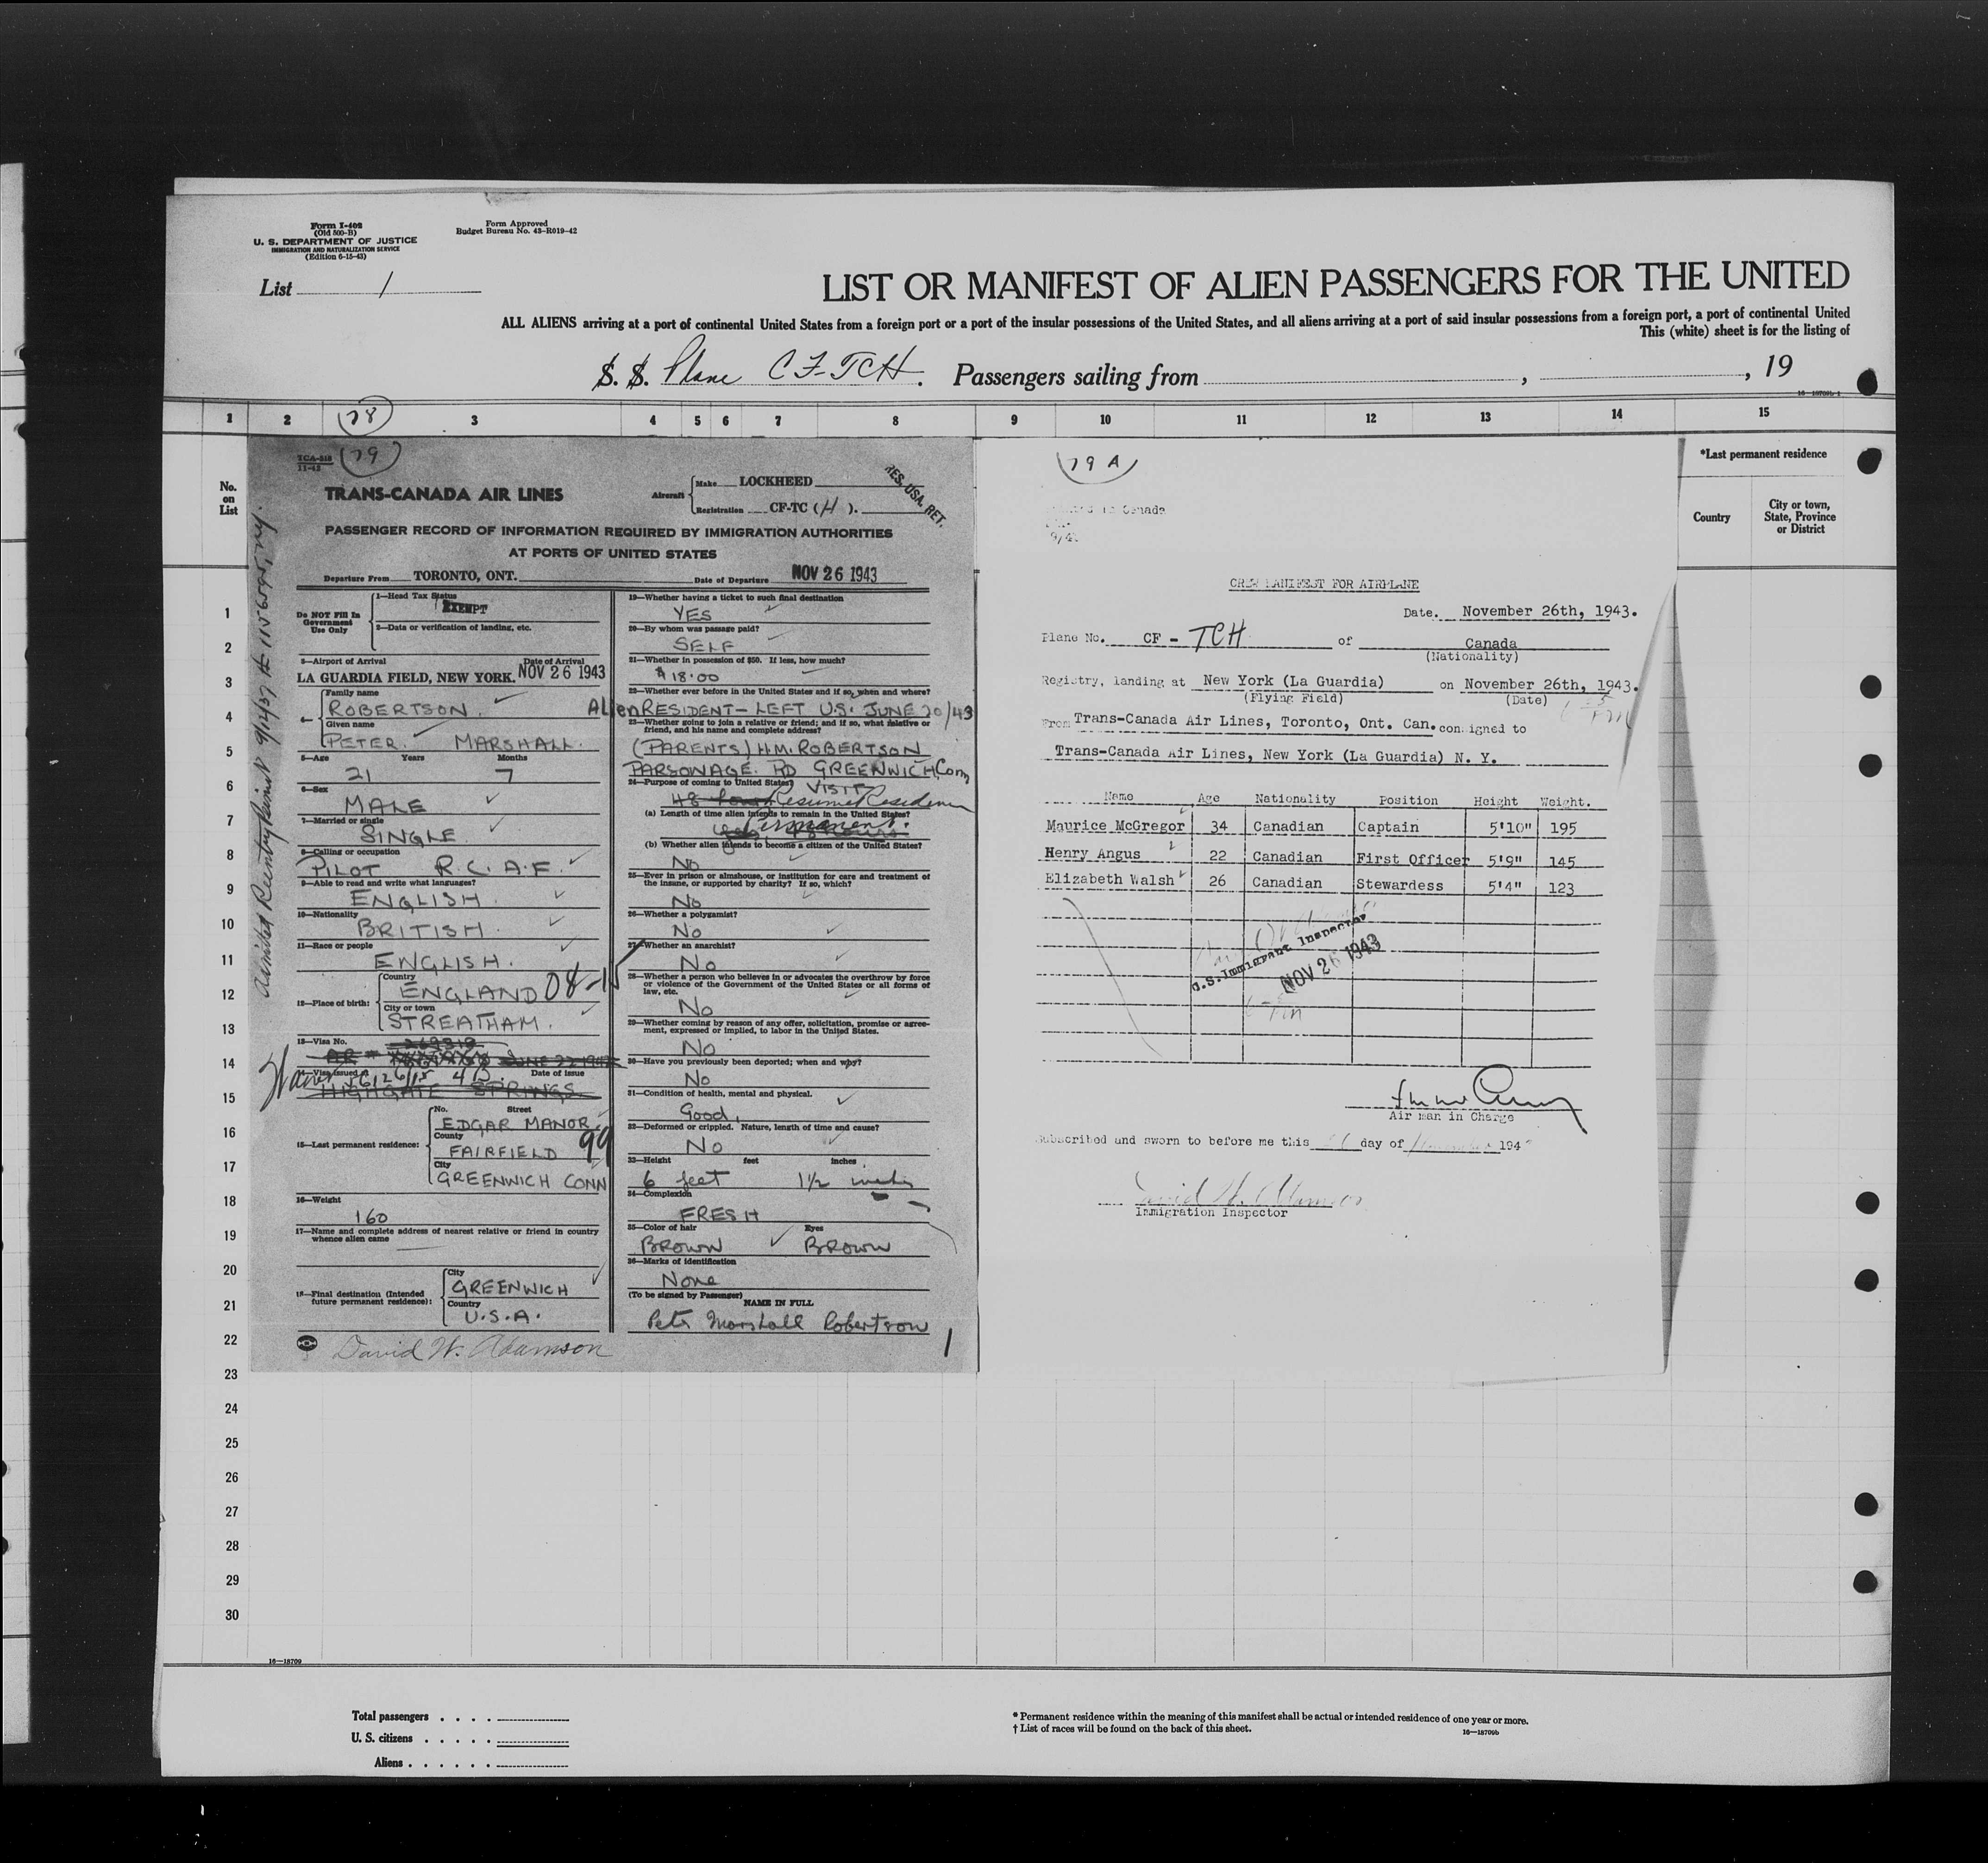 Form I-402
(Old 500-B)
U. S. DEPARTMENT OF JUSTICE
IMMIGRATION AND NATURALIZATION SERVICE
(Edition 6-15-43)
Form Approved
Budget Bureau No. 43-R019-42
List 1
LIST OR MANIFEST OF ALIEN PASSENGERS FOR THE UNITED
ALL ALIENS arriving at a port of continental United States from a foreign port or a port of the insular possessions of the United States, and all aliens arriving at a port of said insular possessions from a foreign port, a port of continental United
This (white) sheet is for the listing of
S. S. Plane CF-TCH. Passengers sailing from , , 19
1 2 3 4 5 6 7 8 9 10 11 12 13 14 15
78
No.
on
List
*Last permanent residence
Country
City or town,
State, Province
or District
TCA-818
11-42
79
TRANS-CANADA AIR LINES
Aircraft
Make LOCKHEED
Registration CF-TC (H).
RES. USA. RET.
PASSENGER RECORD OF INFORMATION REQUIRED BY IMMIGRATION AUTHORITIES
AT PORTS OF UNITED STATES
Departure From TORONTO, ONT. Date of Departure NOV 26 1943
Do NOT Fill In
Government
Use Only
1—Head Tax Status
EXEMPT
2—Data or verification of landing, etc.
3—Airport of Arrival Date of Arrival
LA GUARDIA FIELD, NEW YORK. NOV 26 1943
4—
Family name
ROBERTSON
Given name
PETER MARSHALL
5—Age Years Months
21 7
6—Sex
MALE
7—Married or single
SINGLE
8—Calling or occupation
PILOT R.C.A.F.
9—Able to read and write what languages?
ENGLISH
10—Nationality
BRITISH
11—Race or people
ENGLISH.
12—Place of birth:
Country
ENGLAND 08-15
City or town
STREATHAM.
13—Visa No.
JUNE 22 1942
14—Visa issued at Date of Issue
Waiver
HIGHGATE SPRINGS
15—Last permanent residence:
No. Street
EDGAR MANOR
County
FAIRFIELD 99
City
GREENWICH CONN
16—Weight
160
17—Name and complete address of nearest relative or friend in country
whence alien came
18—Final destination (Intended
future permanent residence):
City
GREENWICH
Country
U.S.A.
David W. Adamson
19—Whether having a ticket to such final destination
YES
20—By whom was passage paid?
SELF
21—Whether in possession of $50. If less, how much?
$18.00
22—Whether ever before in the United States and if so, when and where?
Alien RESIDENT - LEFT U.S. JUNE 20/43
23—Whether going to join a relative or friend; and if so, what relative or
friend, and his name and complete address?
(PARENTS) H.M. ROBERTSON
PARSONAGE RD GREENWICH, Conn
24—Purpose of coming to United States?
VISIT
Resume Residence
(a) Length of time alien intends to remain in the United States?
Permanent.
(b) Whether alien intends to become a citizen of the United States?
No
25—Ever in prison or almshouse, or institution for care and treatment of
the insane, or supported by charity? If so, which?
No
26—Whether a polygamist?
No
27—Whether an anarchist?
No
28—Whether a person who believes in or advocates the overthrow by force
or violence of the Government of the United States or all forms of
law, etc.
No
29—Whether coming by reason of any offer, solicitation, promise or agree-
ment, expressed or implied, to labor in the United States.
No
30—Have you previously been deported; when and why?
No
31—Condition of health, mental and physical.
Good.
32—Deformed or crippled. Nature, length of time and cause?
No
33—Height feet inches
6 feet 1½ inches
34—Complexion
FRESH
35—Color of hair Eyes
BROWN BROWN
36—Marks of identification
None
(To be signed by Passenger) NAME IN FULL
Peter Marshall Robertson
1
79 A
CREW MANIFEST FOR AIRPLANE
Date. November 26th, 1943.
Plane No. CF - TCH of Canada
(Nationality)
Registry, landing at New York (La Guardia) on November 26th, 1943.
(Flying Field) (Date)
From Trans-Canada Air Lines, Toronto, Ont. Can. consigned to
Trans-Canada Air Lines, New York (La Guardia) N. Y.
Name Age Nationality Position Height Weight.
Maurice McGregor 34 Canadian Captain 5'10" 195
Henry Angus 22 Canadian First Officer 5'9" 145
Elizabeth Walsh 26 Canadian Stewardess 5'4" 123
U.S. Immigrant Inspector
NOV 26 1943
Air man in Charge
Subscribed and sworn to before me this 26 day of 194
David W. Adamson
Immigration Inspector
1
2
3
4
5
6
7
8
9
10
11
12
13
14
15
16
17
18
19
20
21
22
23
24
25
26
27
28
29
30
16—18709
Total passengers
U. S. citizens
Aliens
* Permanent residence within the meaning of this manifest shall be actual or intended residence of one year or more.
† List of races will be found on the back of this sheet.
16—18709b